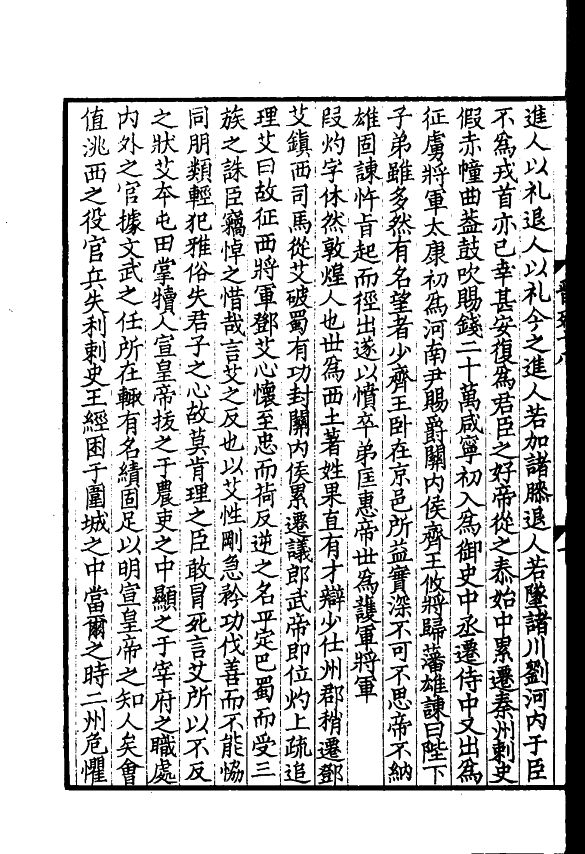 進人以礼退人以礼今之進人若加諸膝退人若墜諸川劉河内于臣
不爲戎首亦已幸甚安復爲君臣之好帝從之泰始中累遷秦州刺史
假赤幢曲蓋鼓吹賜錢二十萬咸寧初入爲御史中丞遷侍中又出爲
征虜將軍太康初爲河南尹賜爵關内侯齊王攸將歸藩雄諫曰陛下
子弟雖多然有名望者少齊王卧在京邑所益實深不可不思帝不納
雄固諫忤旨起而徑出遂以憤卒弟匡惠帝世爲護軍將軍
段灼字休然敦煌人也世爲西土著姓果直有才辯少仕州郡稍遷鄧
艾鎮西司馬從艾破蜀有功封關内侯累遷議郎武帝即位灼上疏追
理艾曰故征西將軍鄧艾心懷至忠而荷反逆之名平定巴蜀而受三
族之誅臣竊悼之惜哉言艾之反也以艾性剛急矜功伐善而不能恊
同朋類輕犯雅俗失君子之心故莫肯理之臣敢冒死言艾所以不反
之狀艾夲屯田掌犢人宣皇帝拔之于農吏之中顯之于宰府之職處
内外之官據文武之任所在輙有名績固足以明宣皇帝之知人矣會
值洮西之役官兵失利刺史王經困于圍城之中當爾之時二州危懼